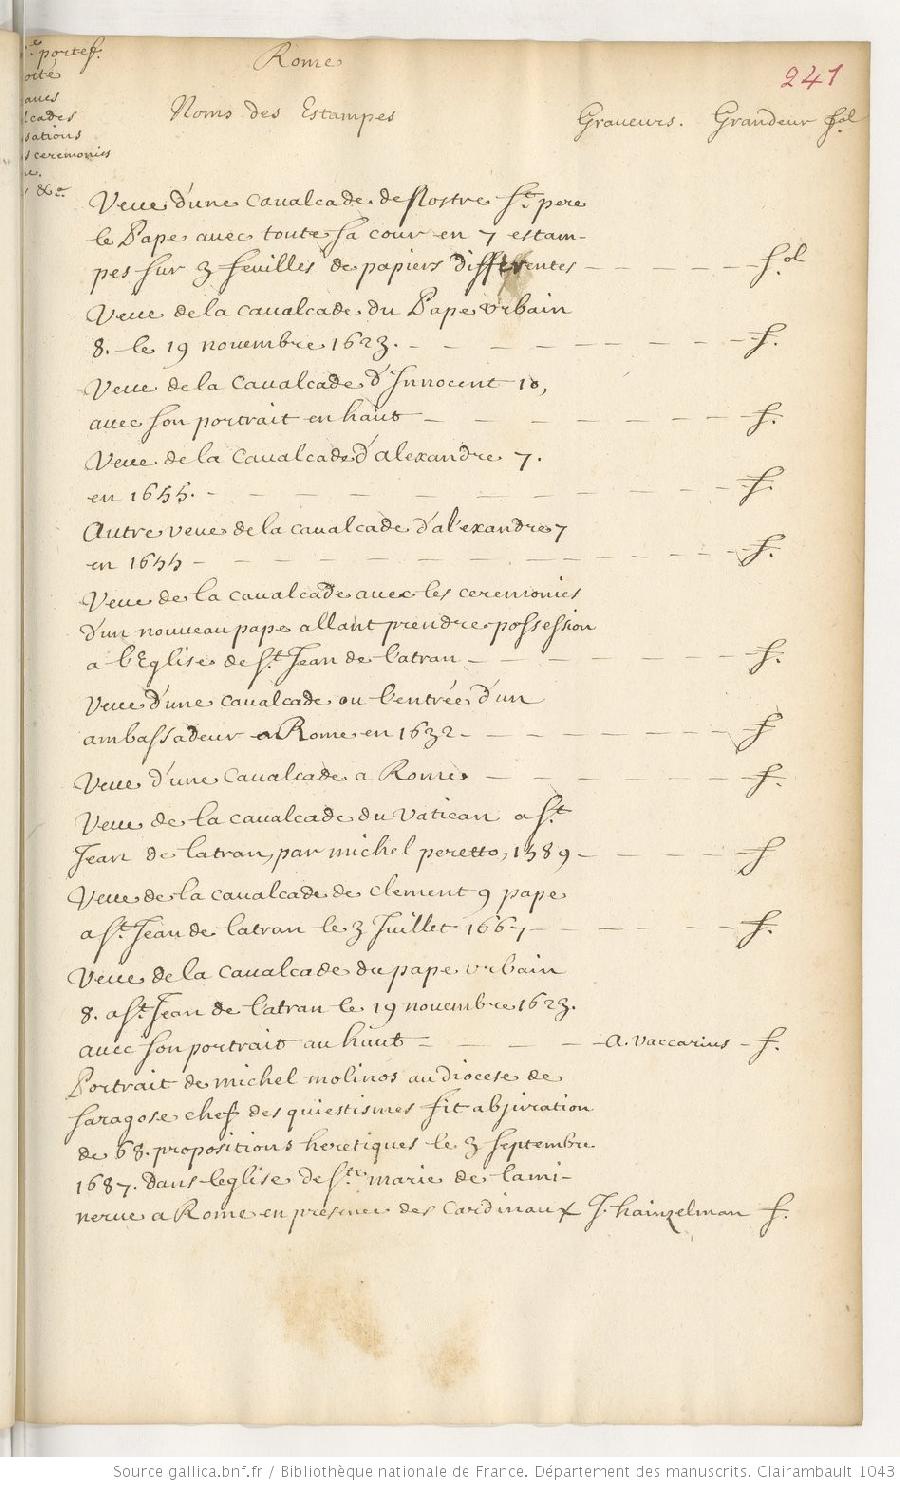 portef.
Rome
241
cades
sations
ceremonies
&c.
Noms des Estampes Graueurs. Grandeur fol
Veue d'une caualcade de Nostre St. pere
le Pape auec toute sa cour en 7 estam-
pes sur 3 feuilles de papiers differentes - fol
Veue de la caualcade du Pape Urbain
8. le 19 novembre 1623. - f.
Veue de la caualcade d'Innocent 10,
auec son portrait en haut - f.
Veue de la caualcade d'alexandre 7.
en 1655. - f.
Autre veue de la caualcade d'alexandre 7
en 1655 - f.
Veue de la caualcade auec les ceremonies
d'un nouueau pape allant prendre possession
a l'Eglise de St. Jean de latran - f.
Veue d'une caualcade ou l'entrée d'un
ambassadeur a Rome en 1632 - f
Veue d'une caualcade a Rome. - f.
Veue de la caualcade du Vatican a St.
Jean de latran, par michel peretto, 1589 - f
Veue de la caualcade de clement 9 pape
a St. Jean de latran le 3 Juillet 1667, - f.
Veue de la caualcade du pape urbain
8. a St. Jean de latran le 19 novembre 1623.
auec son portrait au haut - a. vaccarius - f.
Portrait de michel molinos au diocese de
saragose chef des quiestismes fit abjuration
de 68. propositions heretiques le 3 septembre
1687. dans leglise de Ste. marie de lami-
nerue a Rome en presence des Cardinaux J. hainzelman f.
Source gallica.bnf.fr / Bibliothèque nationale de France. Département des manuscrits. Clairambault 1043